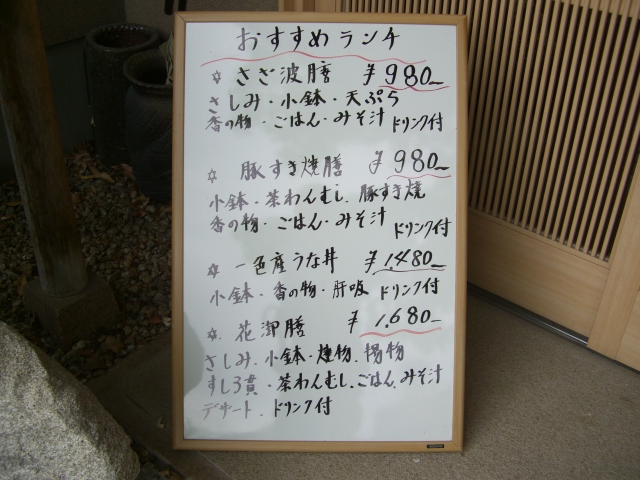 おすすめランチ
☆ さざ波膳 ¥980-
さしみ・小鉢・天ぷら
香の物・ごはん・みそ汁 ドリンク付
☆ 豚すき焼膳 ¥980-
小鉢・茶わんむし.豚すき焼
香の物・ごはん・みそ汁 ドリンク付
☆ 一色産うな丼 ¥1.480-
小鉢・香の物・肝吸 ドリンク付
☆. 花御膳 ¥1.680-
さしみ.小鉢・煙物.揚物
すし3貫・茶わんむし.ごはん.みそ汁
デザート.ドリンク付